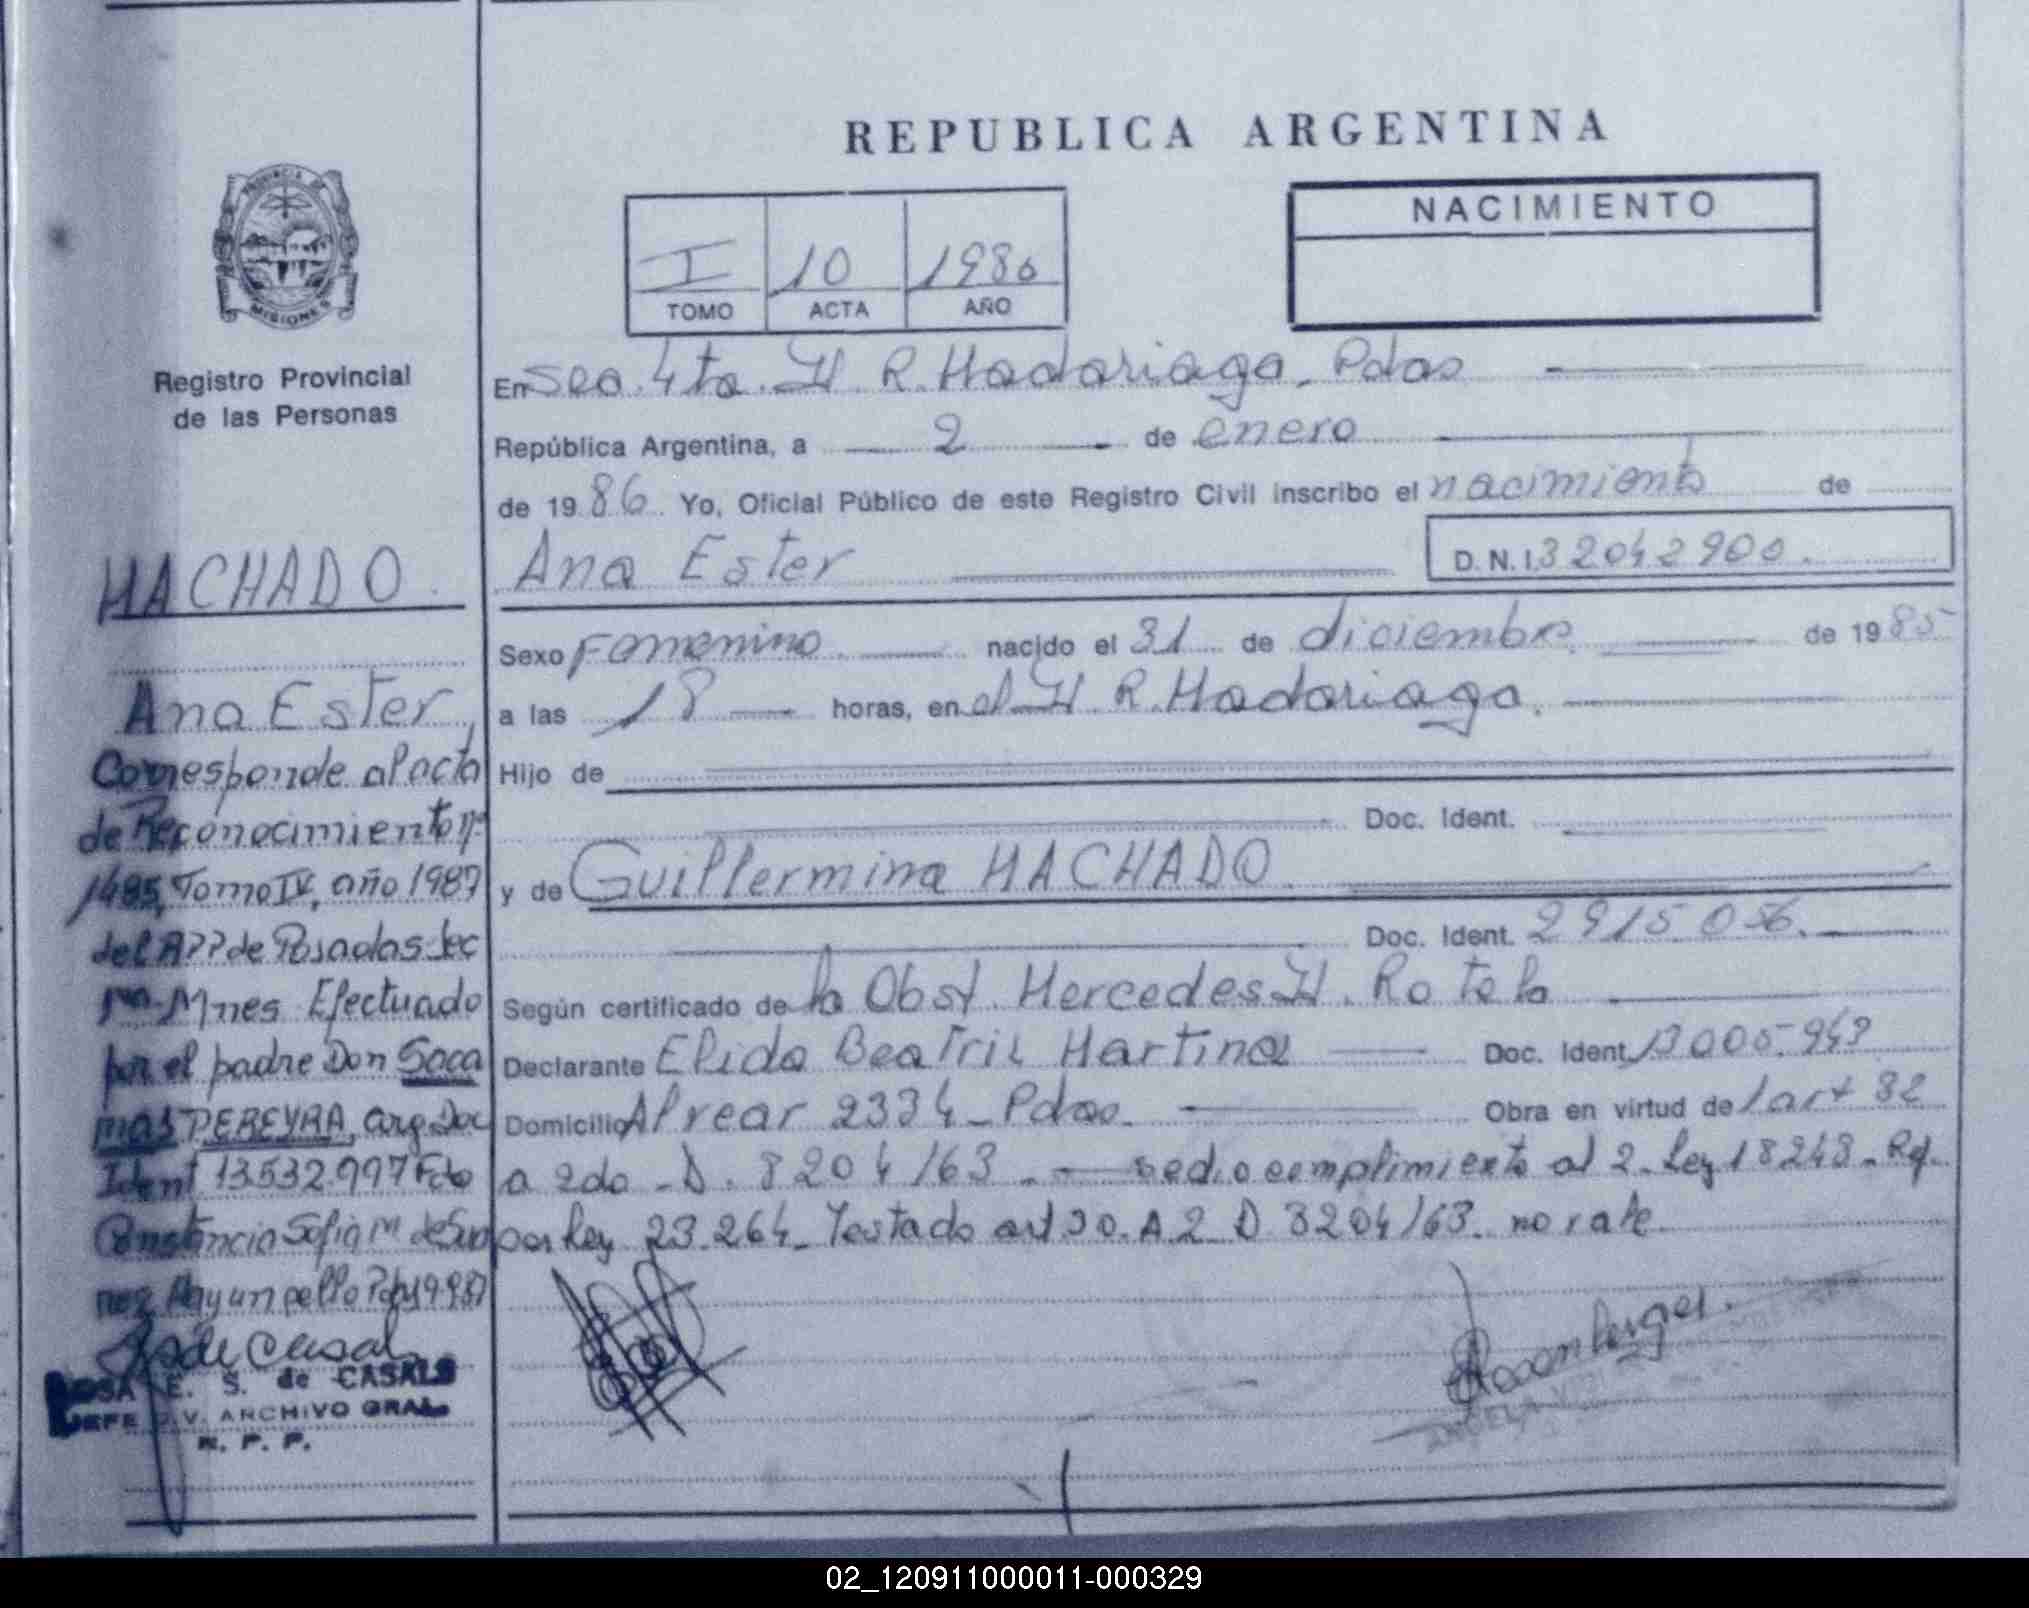 REPUBLICA ARGENTINA
PROVINCIA DE
MISIONES
Registro Provincial
de las Personas
I 10 1986
TOMO ACTA AÑO
NACIMIENTO
En Sec. 4ta. H R. Madariaga. Pdas
República Argentina, a 2 de enero
de 19 86. Yo, Oficial Público de este Registro Civil inscribo el nacimiento de
Ana Ester D.N.I. 32042900.
Sexo Femenino nacido el 31 de diciembre de 1985
a las 18 horas, en el H. R. Madariaga.
Hijo de
Doc. Ident.
y de Guillermina MACHADO
Doc. Ident. 2915056.
Según certificado de la Obst. Mercedes H. Rotela
Declarante Elida Beatriz Martinez Doc. Ident. 13005.943
Domicilio Alvear 2334 - Pdas. Obra en virtud de l art 82
a 2do - D. 8204/63. - se dio cumplimiento al 2. Ley 18248 - Rf.
por Ley 23.264. Testado art 30. A. 2. D 8204/63. no vale.
MACHADO
Ana Ester
Corresponde al acta
de Reconocimiento nº
1485, Tomo IV, año 1987
del RPP de Posadas Sec
1ra. Mnes Efectuado
por el padre Don Soca
mas PEREYRA, arg. Doc
Ident 13.532.997 Fdo
Constancia Sofia M de
R. S. de Casals
ROSA E. S. de CASALS
JEFE DIV. ARCHIVO GRAL.
R. P. P.
02_120911000011-000329